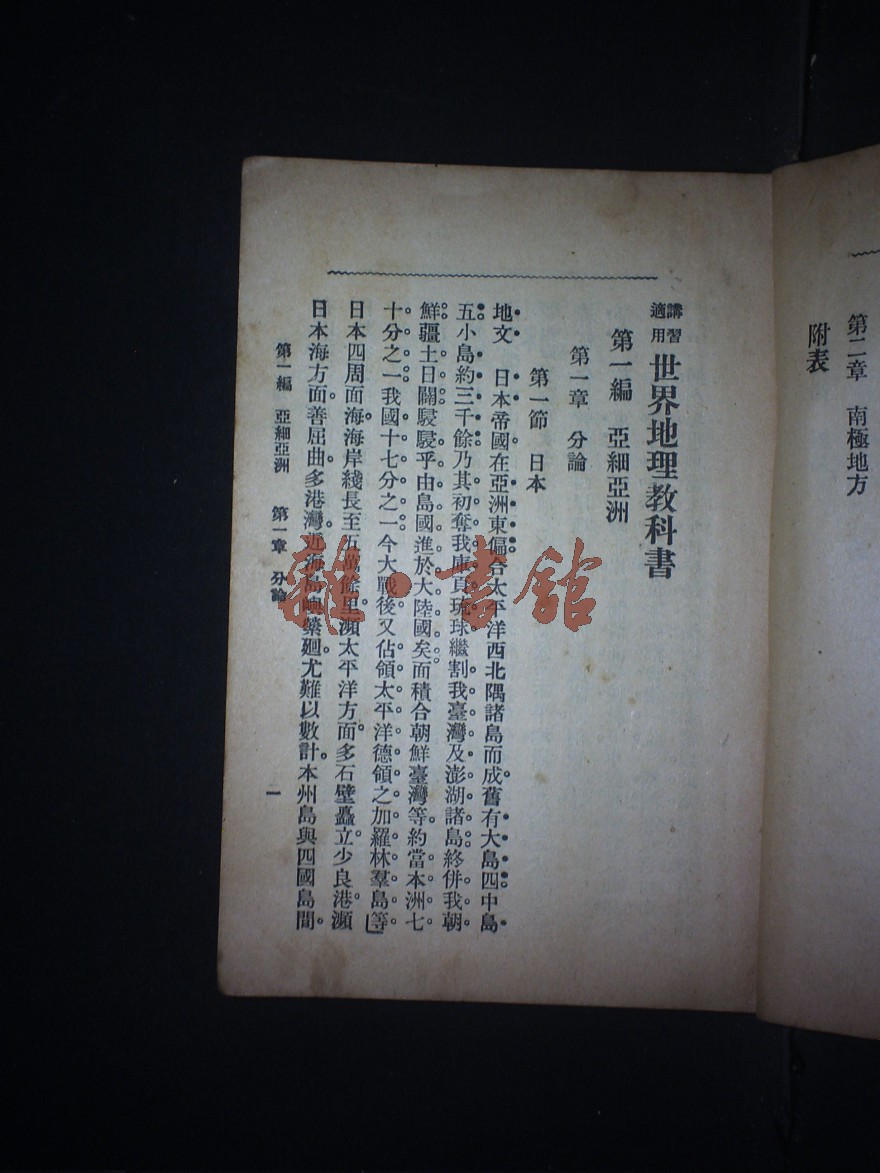 第二章 南極地方
附表
講習適用 世界地理教科書
第一編 亞細亞洲
第一章 分論
第一節 日本
地文 日本帝國在亞洲東偏合太平洋西北隅諸島而成舊有大島四中島
五小島約三千餘乃其初奪我庫頁琉球繼割我臺灣及澎湖諸島終併我朝
鮮疆土日闢駸駸乎由島國進於大陸國矣面積合朝鮮臺灣等約當本洲七
十分之一我國十七分之一今大戰後又佔領太平洋德領之加羅林羣島等
日本四周面海海岸綫長至五萬餘里瀕太平洋方面多石壁矗立少良港瀕
日本海方面善屈曲多港灣近海島嶼縈廻尤難以數計本州島與四國島間
第一編 亞細亞洲 第一章 分論 一
雜·書館